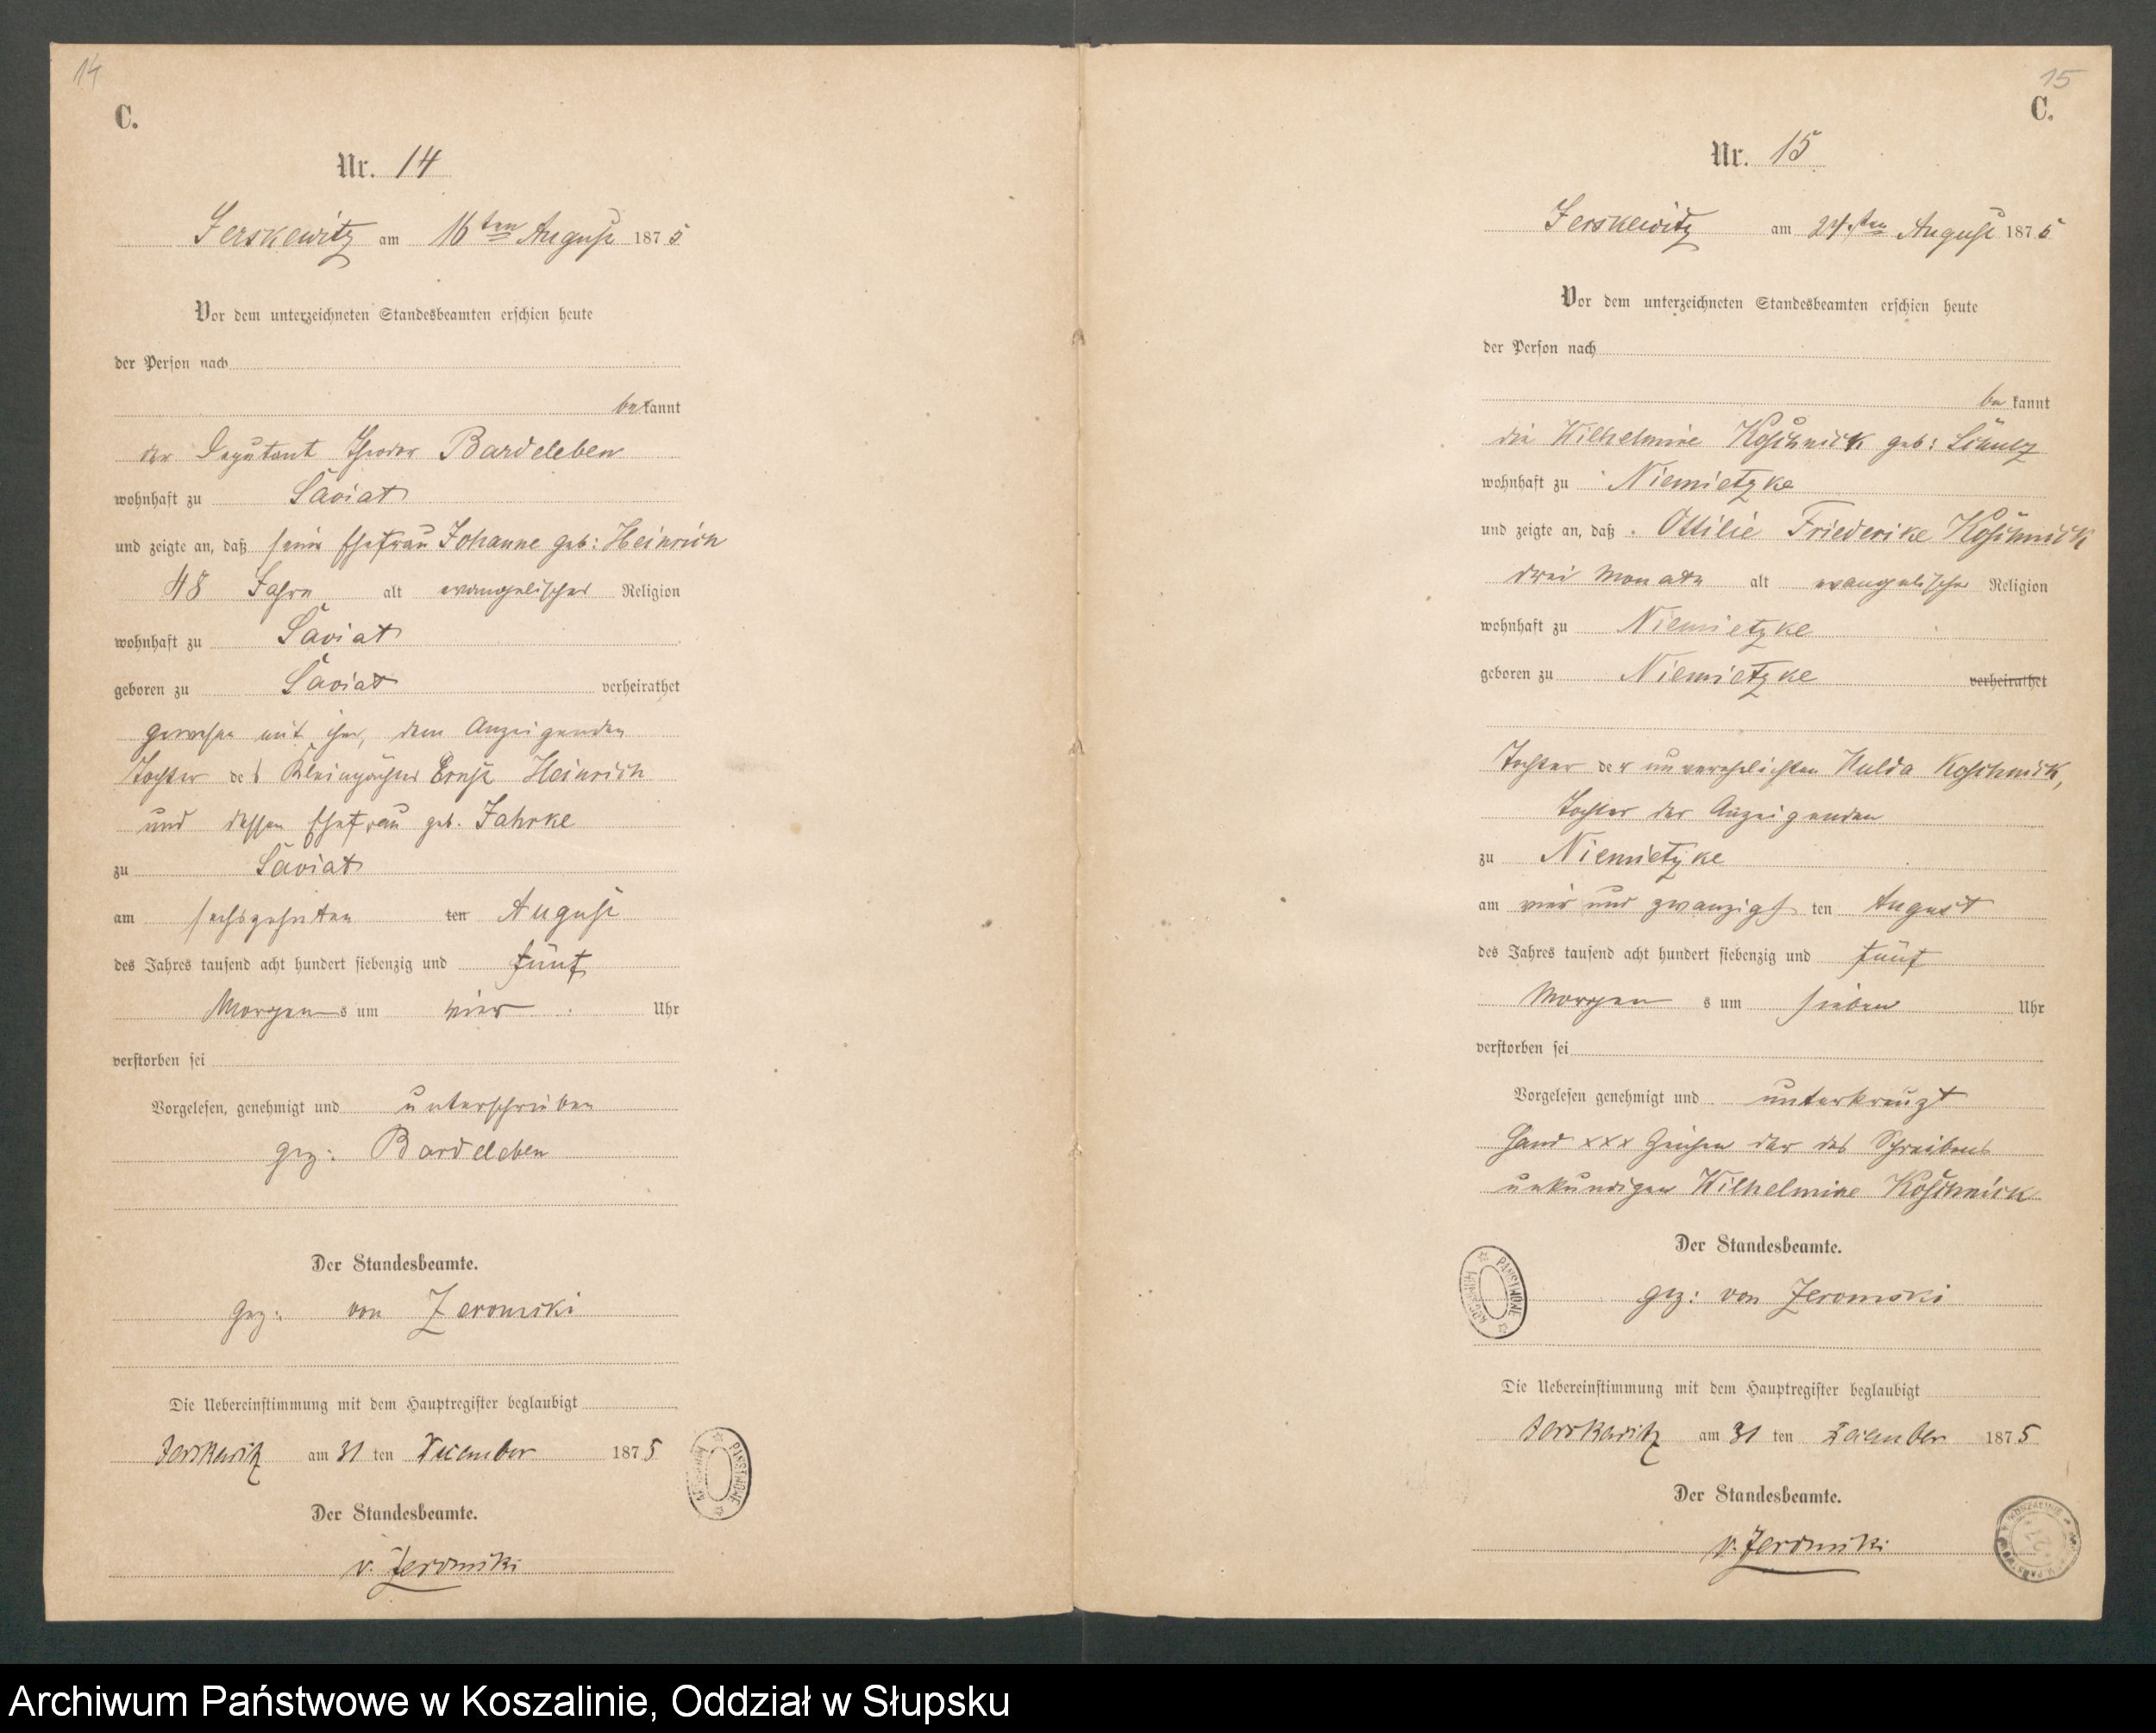 14
C.
Nr. 14
Jerskewitz am 16ten August 1875
Vor dem unterzeichneten Standesbeamten erschien heute
der Person nach
bekannt
der Deputant Theodor Bardeleben
wohnhaft zu Saviat
und zeigte an, daß seine Ehefrau Johanne geb: Heinrich
48 Jahre alt evangelischer Religion
wohnhaft zu Saviat
geboren zu Saviat verheirathet
gewesen mit ihm, dem Anzeigenden
Tochter des Kleinpächters Ernst Heinrich
und dessen Ehefrau geb. Jahnke
zu Saviat
am sechszehnten ten August
des Jahres tausend acht hundert siebenzig und fünf
Morgens um vier Uhr
verstorben sei
Vorgelesen, genehmigt und unterschrieben
gez: Bardeleben
Der Standesbeamte.
gez: von Zeromski
Die Uebereinstimmung mit dem Hauptregister beglaubigt
Jerskewitz am 31 ten December 1875
Der Standesbeamte.
v. Zeromski
15
C.
Nr. 15
Jerskewitz am 24sten August 1875
Vor dem unterzeichneten Standesbeamten erschien heute
der Person nach
bekannt
die Wilhelmine Koschnick geb: Schulz
wohnhaft zu Niemietzke
und zeigte an, daß Ottilie Friederike Koschnick
drei Monate alt evangelischer Religion
wohnhaft zu Niemietzke
geboren zu Niemietzke verheirathet
Tochter der unverehelichten Hulda Koschnick,
Tochter der Anzeigenden
zu Niemietzke
am vier und zwanzigsten August
des Jahres tausend acht hundert siebenzig und fünf
Morgens um sieben Uhr
verstorben sei
Vorgelesen genehmigt und unterkreuzt
Hand xxx Zeichen der des Schreibens
unkundigen Wilhelmine Koschnick
Der Standesbeamte.
gez: von Zeromski
Die Uebereinstimmung mit dem Hauptregister beglaubigt
Jerskewitz am 31 ten December 1875
Der Standesbeamte.
v. Zeromski
Archiwum Państwowe w Koszalinie, Oddział w Słupsku